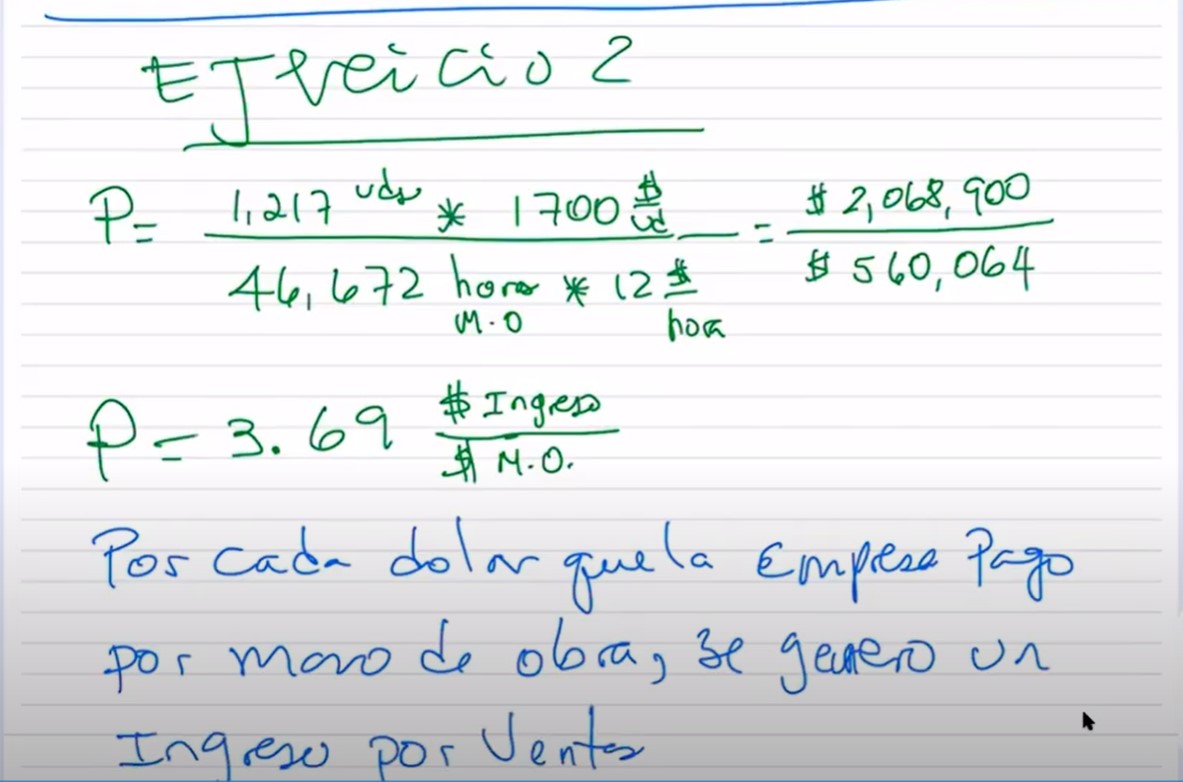 Ejercicio 2
P= 1,217 uds * 1700 $/ud = $ 2,068,900
46,672 horas M.O * 12 $/hora $ 560,064
P = 3.69 $ Ingreso
$ M.O.
Por cada dolar que la Empresa Pago
por mano de obra, se genero un
Ingreso por Ventas